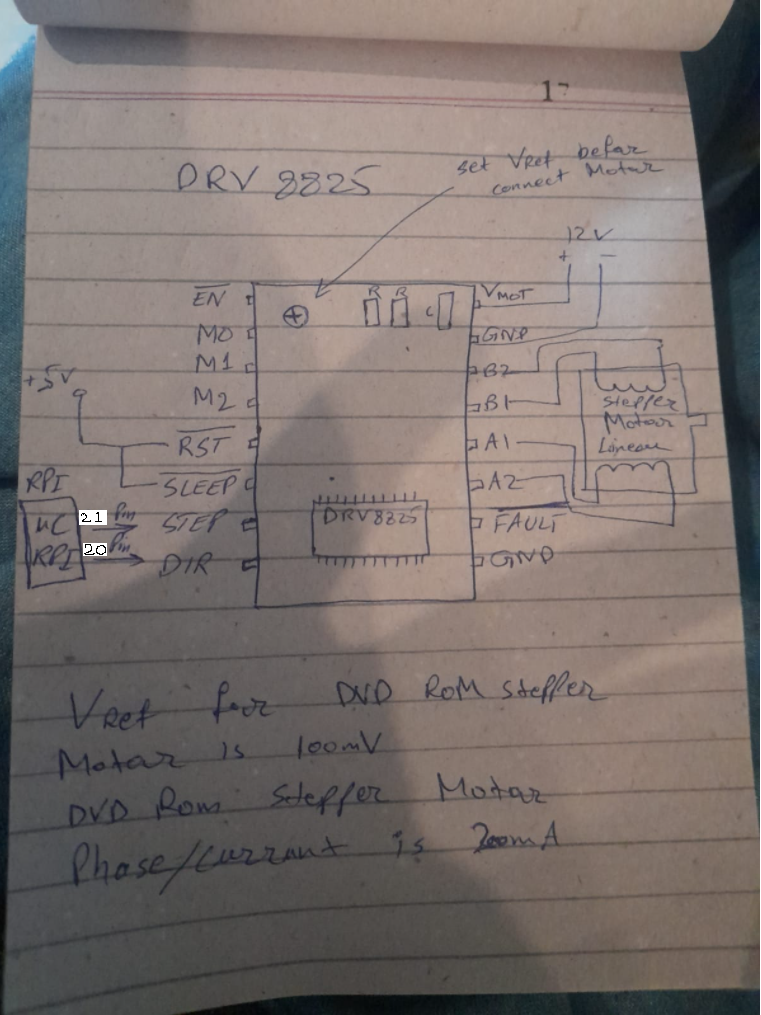 17
DRV 8825
set Vref befar
connect Motar
12V
+ -
EN
M0
M1
M2
+5V
RST
SLEEP
STEP
DIR
RPI
uC
RPI
21 Pin
20 Pin
R R C
DRV8825
VMOT
GND
B2
B1
A1
A2
FAULT
GND
stepper
Motar
Linear
VRef for DVD ROM stepper
Motar is 100mV
DVD Rom stepper Motar
Phase/currant is 200mA